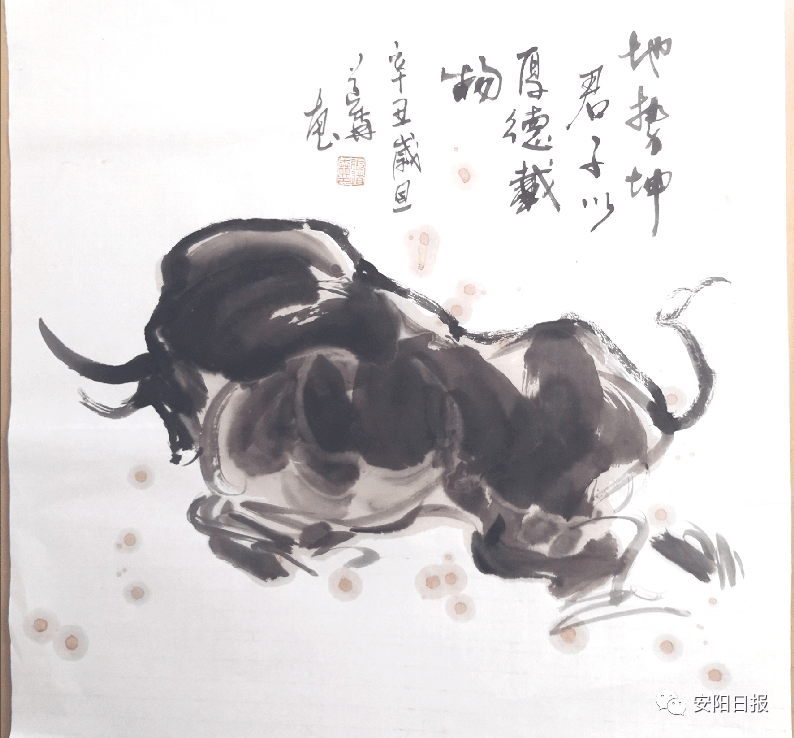 地势坤
君子以
厚德戴
物
辛丑歲旦
安阳日报